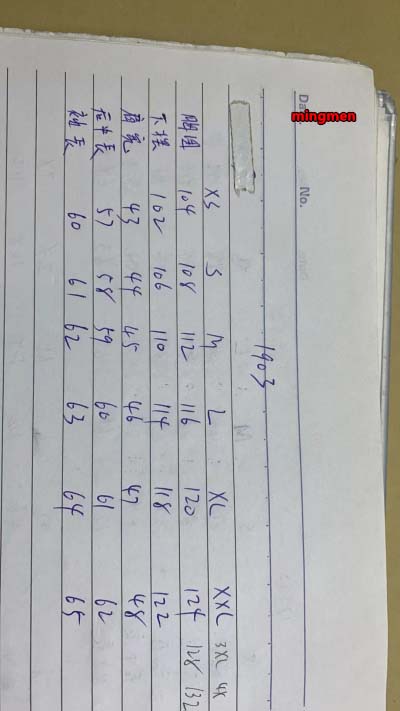 Da
mingmen
No.
1903
XS S M L XL XXL 3XL 4X
胸围 104 108 112 116 120 124 128 132
下摆 102 106 110 114 118 122
肩宽 43 44 45 46 47 48
后中长 57 58 59 60 61 62
袖长 60 61 62 63 64 65